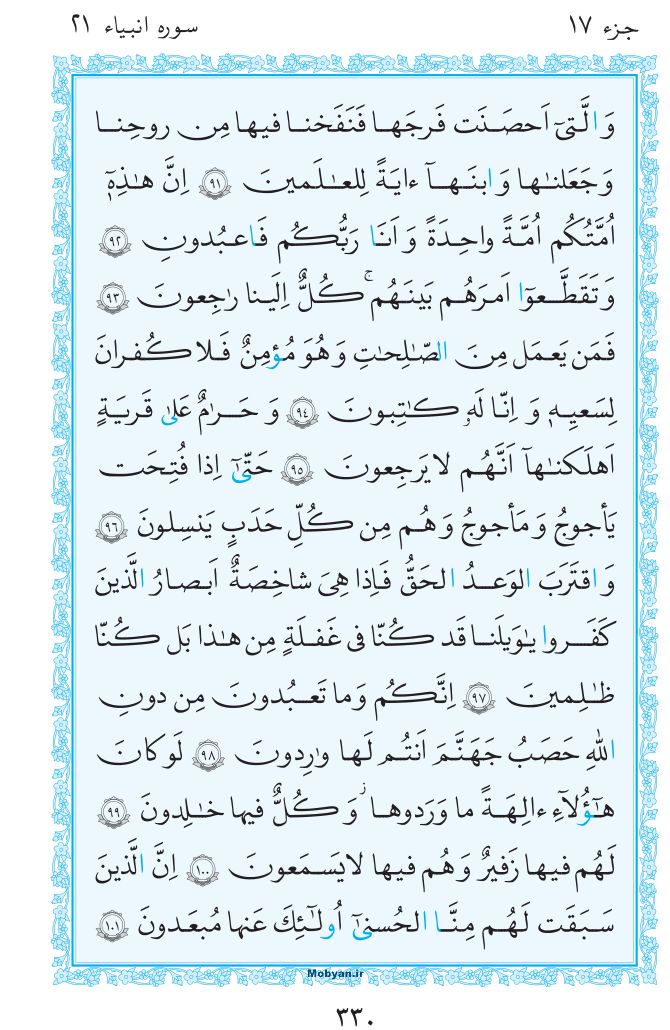 جزء ۱۷
سوره انبیاء ۲۱
وَ الَّتىٓ اَحصَنَت فَرجَها فَنَفَخنا فيها مِن روحِنا
وَ جَعَلنٰها وَ ابنَهآ ءايَةً لِلعٰلَمينَ ﴿٩١﴾ اِنَّ هٰذِهٖٓ
اُمَّتُكُم اُمَّةً واحِدَةً وَ اَنَا رَبُّكُم فَاعبُدونِ ﴿٩٢﴾
وَ تَقَطَّعوٓا اَمرَهُم بَينَهُمۚ كُلٌّ اِلَينا رٰجِعونَ ﴿٩٣﴾
فَمَن يَعمَل مِنَ الصّٰلِحٰتِ وَ هُوَ مُؤمِنٌ فَلا كُفرانَ
لِسَعيِهٖ وَ اِنّا لَهٗ كٰتِبونَ ﴿٩٤﴾ وَ حَرٰمٌ عَلىٰ قَريَةٍ
اَهلَكنٰهآ اَنَّهُم لا يَرجِعونَ ﴿٩٥﴾ حَتّىٰٓ اِذا فُتِحَت
يَأجوجُ وَ مَأجوجُ وَ هُم مِن كُلِّ حَدَبٍ يَنسِلونَ ﴿٩٦﴾
وَ اقتَرَبَ الوَعدُ الحَقُّ فَاِذا هِىَ شاخِصَةٌ اَبصارُ الَّذينَ
كَفَروا يٰوَيلَنا قَد كُنّا فى غَفلَةٍ مِن هٰذا بَل كُنّا
ظٰلِمينَ ﴿٩٧﴾ اِنَّكُم وَ ما تَعبُدونَ مِن دونِ
اللهِ حَصَبُ جَهَنَّمَ اَنتُم لَها وٰرِدونَ ﴿٩٨﴾ لَو كانَ
هٰٓؤُلآءِ ءالِهَةً ما وَرَدوهاۖ وَ كُلٌّ فيها خٰلِدونَ ﴿٩٩﴾
لَهُم فيها زَفيرٌ وَ هُم فيها لا يَسمَعونَ ﴿١٠٠﴾ اِنَّ الَّذينَ
سَبَقَت لَهُم مِنَّا الحُسنىٰٓ اُولٰٓئِكَ عَنها مُبعَدونَ ﴿١٠١﴾
Mobyan.ir
۳۳۰